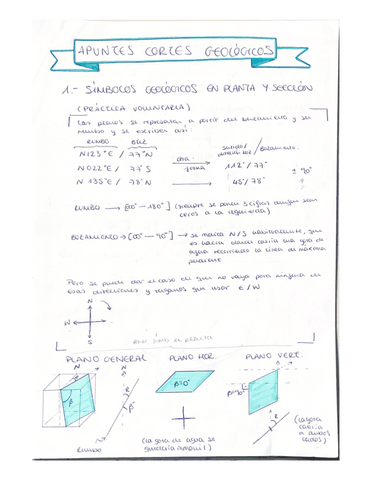 APUNTES CORTES GEOLÓGICOS
1.- SÍMBOLOS GEOLÓGICOS EN PLANTA Y SECCIÓN
(PRÁCTICA VOLUNTARIA)
Los planos se representan a partir del buzamiento y su
rumbo y se escriben así:
RUMBO / BUZ otra forma sentido / buzamiento
N123°E / 77°N 112° / 77°
N022°E / 77°S ± 90°
N135°E / 78°N 48° / 78°
RUMBO → [00° - 180°] (siempre se ponen 3 cifras aunque sean
ceros a la izquierda)
BUZAMIENTO → [00° - 90°] → se marca N/S
es hacia donde caería una gota de
agua recorriendo la línea de máxima
pendiente
Pero se puede dar el caso en que no vaya para ninguna de
esas direcciones y tengamos que usar E/W
N
W E
S
PLANO GENERAL PLANO HOR. PLANO VERT.
N
β
β=0°
β=90°
R
RUMBO
(la gota de agua se
quedaría inmóvil)
(la gota
caería
a ambos
lados)